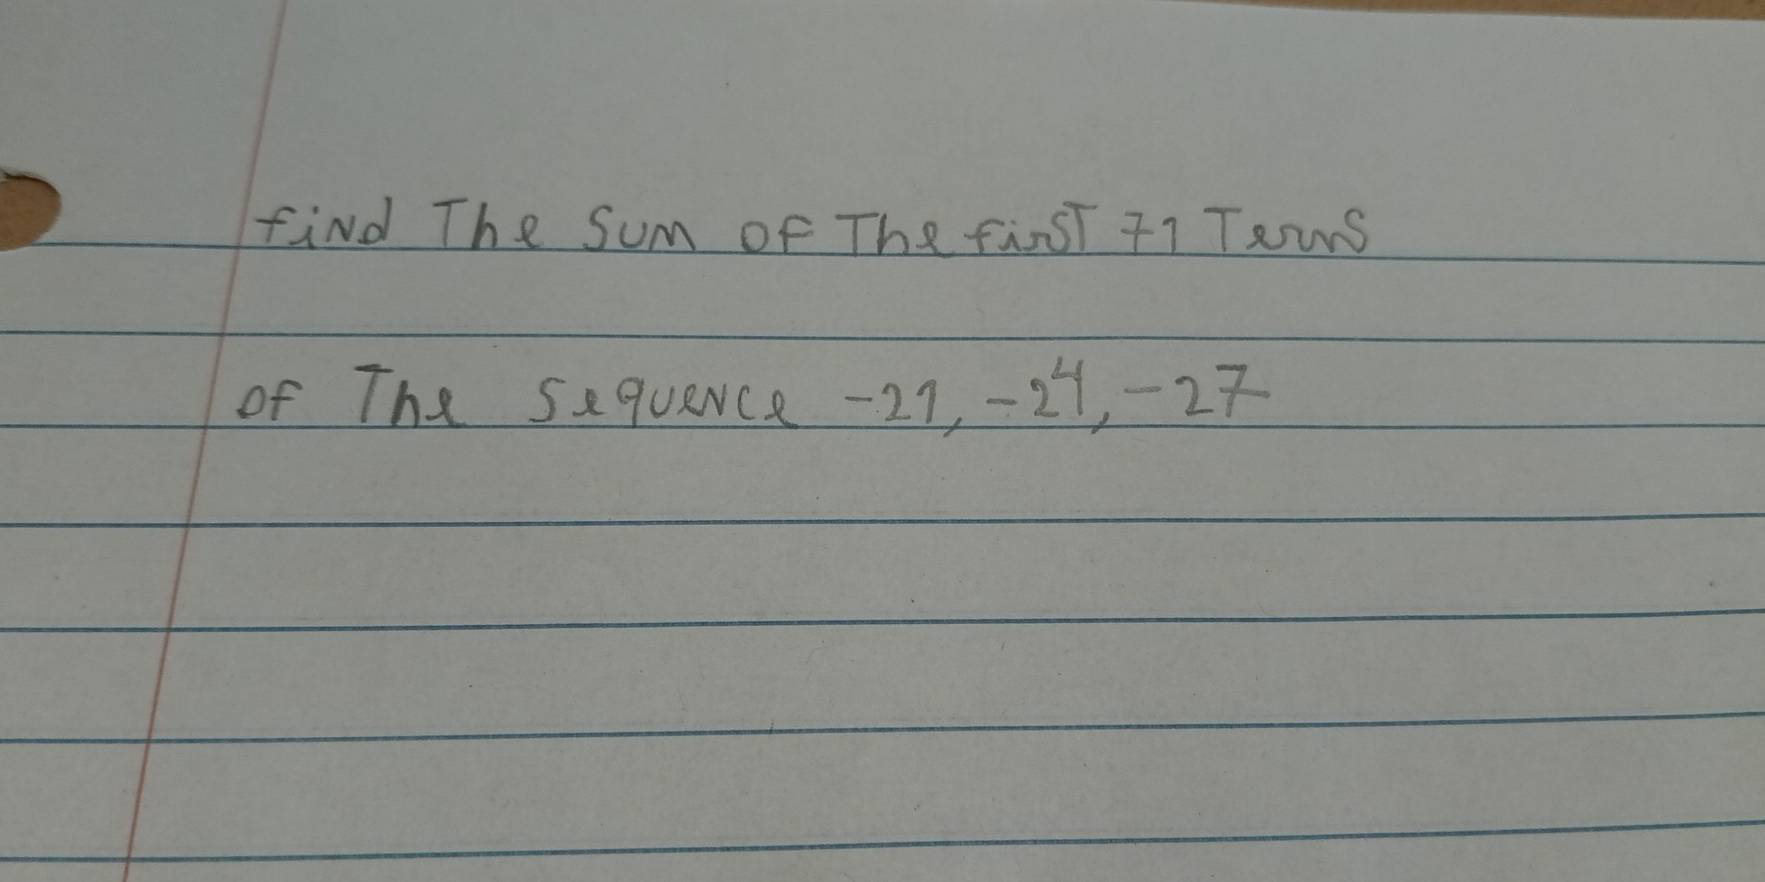 find The Sum OF The first 71 Terms
of The Sequence -21, -24, -27